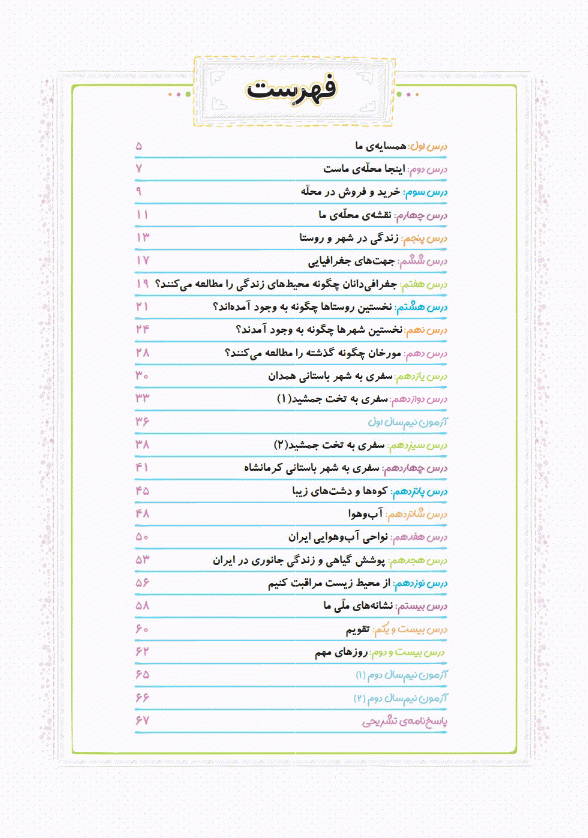 فهرست
درس اول: همسایه‌ی ما ۵
درس دوم: اینجا محلّه‌ی ماست ۷
درس سوم: خرید و فروش در محلّه ۹
درس چهارم: نقشه‌ی محلّه‌ی ما ۱۱
درس پنجم: زندگی در شهر و روستا ۱۳
درس ششم: جهت‌های جغرافیایی ۱۷
درس هفتم: جغرافی‌دانان چگونه محیط‌های زندگی را مطالعه می‌کنند؟ ۱۹
درس هشتم: نخستین روستاها چگونه به وجود آمده‌اند؟ ۲۱
درس نهم: نخستین شهرها چگونه به وجود آمدند؟ ۲۴
درس دهم: مورخان چگونه گذشته را مطالعه می‌کنند؟ ۲۸
درس یازدهم: سفری به شهر باستانی همدان ۳۰
درس دوازدهم: سفری به تخت جمشید(۱) ۳۳
آزمون نیم‌سال اول ۳۶
درس سیزدهم: سفری به تخت جمشید(۲) ۳۸
درس چهاردهم: سفری به شهر باستانی کرمانشاه ۴۱
درس پانزدهم: کوه‌ها و دشت‌های زیبا ۴۵
درس شانزدهم: آب‌وهوا ۴۸
درس هفدهم: نواحی آب‌وهوایی ایران ۵۰
درس هجدهم: پوشش گیاهی و زندگی جانوری در ایران ۵۳
درس نوزدهم: از محیط زیست مراقبت کنیم ۵۶
درس بیستم: نشانه‌های ملّی ما ۵۸
درس بیست و یکم: تقویم ۶۰
درس بیست و دوم: روزهای مهم ۶۲
آزمون نیم‌سال دوم (۱) ۶۵
آزمون نیم‌سال دوم (۲) ۶۶
پاسخ‌نامه‌ی تشریحی ۶۷